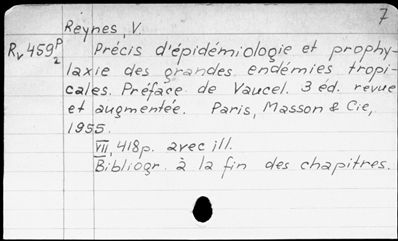 7
Reynes, V.
Rv 459 P/2
Précis d'épidémiologie et prophy-
laxie des grandes endémies tropi-
cales. Préface de Vaucel. 3 éd. revue
et augmentée. Paris, Masson & Cie,
1955.
VII, 418p. avec ill.
Bibliogr. à la fin des chapitres.